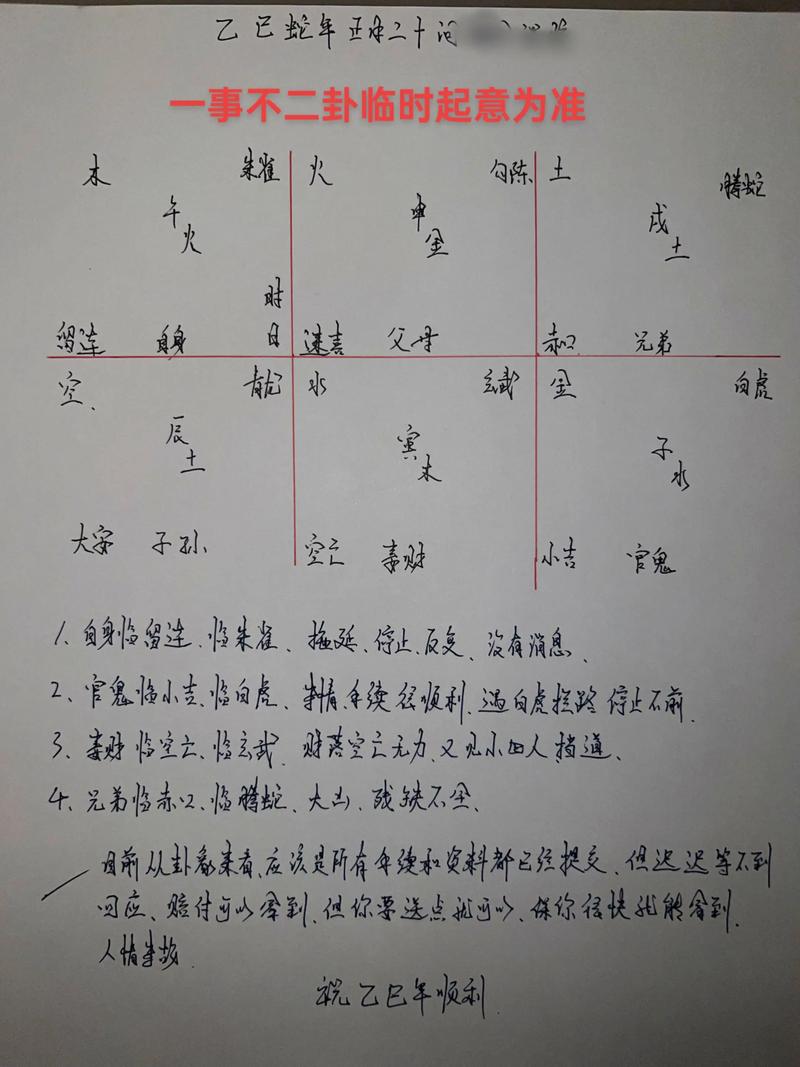 乙巳蛇年正月二十问
一事不二卦临时起意为准
木 朱雀 火 勾陈 土 腾蛇
午火 申金 戌土
时
留连 自身 日 速喜 父母 赤口 兄弟
空、 青龙 水 玄武 金 白虎
辰土 寅木 子水
大安 子孙 空亡 妻财 小吉 官鬼
1、自身临留连、临朱雀、拖延、停止、反复、没有消息、
2、官鬼临小吉、临白虎、事情、手续很顺利、遇白虎拦路停止不前.
3、妻财临空亡、临玄武、财落空亡无力、又见小人挡道、
4、兄弟临赤口、临腾蛇、大凶、残缺不全、
目前从卦象来看、应该是所有手续和资料都已经提交、但迟迟等不到
回应、赔付可以拿到、但你要送点就可以、保你很快就能拿到.
人情事故.
祝乙巳年顺利.